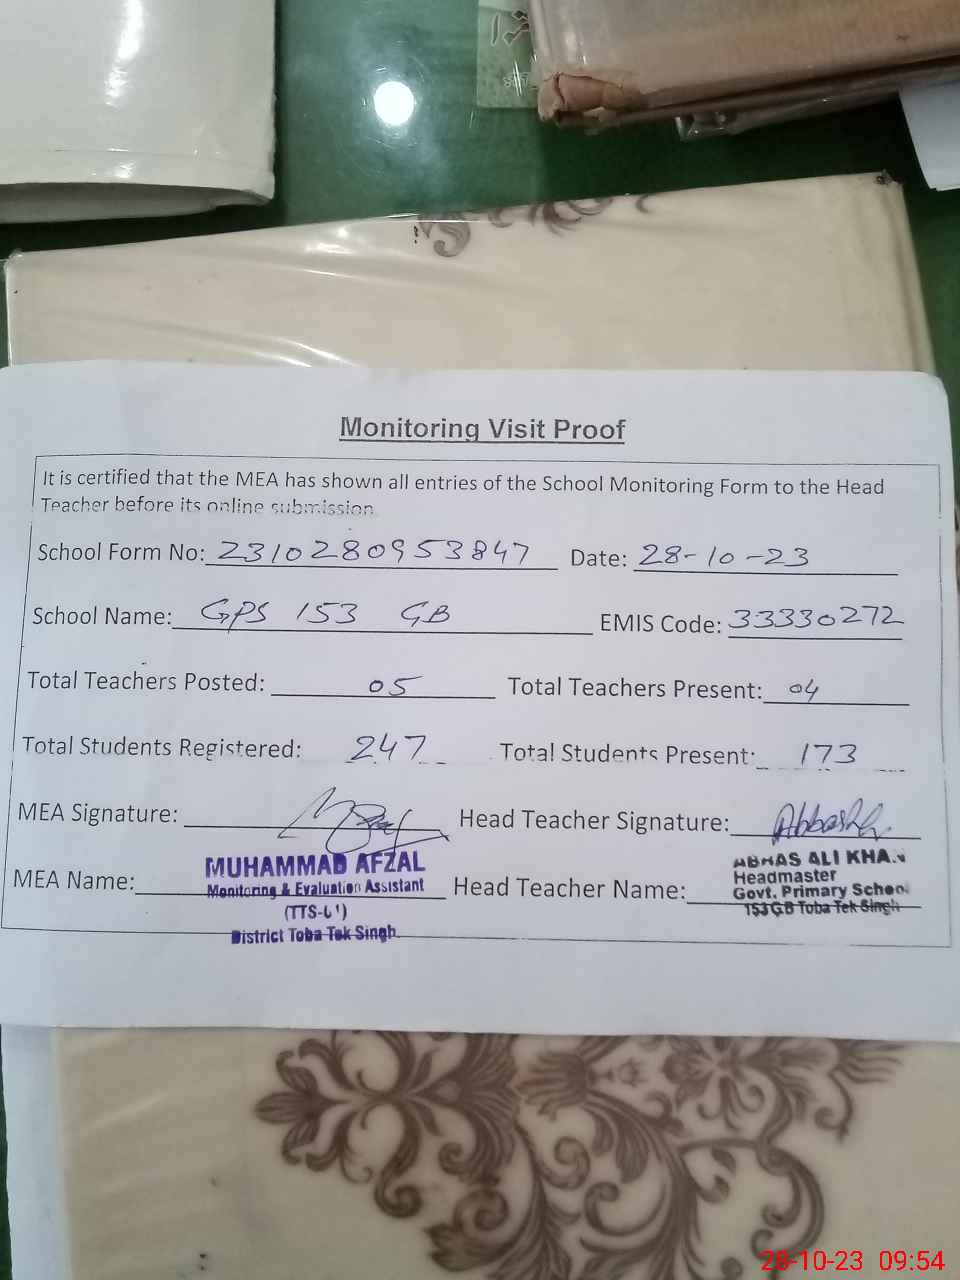 Monitoring Visit Proof
It is certified that the MEA has shown all entries of the School Monitoring Form to the Head
Teacher before its online submission.
School Form No: 2310280953847 Date: 28-10-23
School Name: GPS 153 GB EMIS Code: 33330272
Total Teachers Posted: 05 Total Teachers Present: 04
Total Students Registered: 247 Total Students Present: 173
MEA Signature: Head Teacher Signature:
MEA Name: Head Teacher Name:
MUHAMMAD AFZAL
Monitoring & Evaluation Assistant
District Toba Tek Singh
ABBAS ALI KHAN
Headmaster
Govt. Primary School
153 GB Toba Tek Singh
28-10-23 09:54